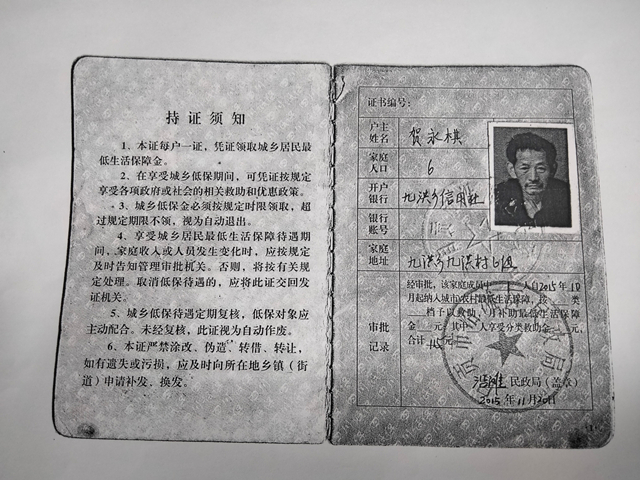 持证须知
1、本证每户一证，凭证领取城乡居民最
低生活保障金。
2、在享受城乡低保期间，可凭证按规定
享受各项政府或社会的相关救助和优惠政策。
3、城乡低保金必须按规定时限领取，超
过规定期限不领，视为自动退出。
4、享受城乡居民最低生活保障待遇期
间，家庭收入或人员发生变化时，应按规定
及时告知管理审批机关。否则，将按有关规
定处理。取消低保待遇的，应将此证交回发
证机关。
5、城乡低保待遇定期复核，低保对象应
主动配合。未经复核，此证视为自动作废。
6、本证严禁涂改、伪造、转借、转让，
如有遗失或污损，应及时向所在地乡镇（街
道）申请补发、换发。
证书编号：
户主
姓名
贺永棋
家庭
人口
6
开户
银行
九洪乡信用社
银行
账号
家庭
地址
九洪乡九洪村6组
审批
记录
经审批，该家庭成员中 人自2015年
月起纳入城市/农村最低生活保障，按 类
档予以救助，月补助最低生活保障
金 元；其中 人享受分类救助金 元，
合计 元。
民政局（盖章）
2015年11月20日